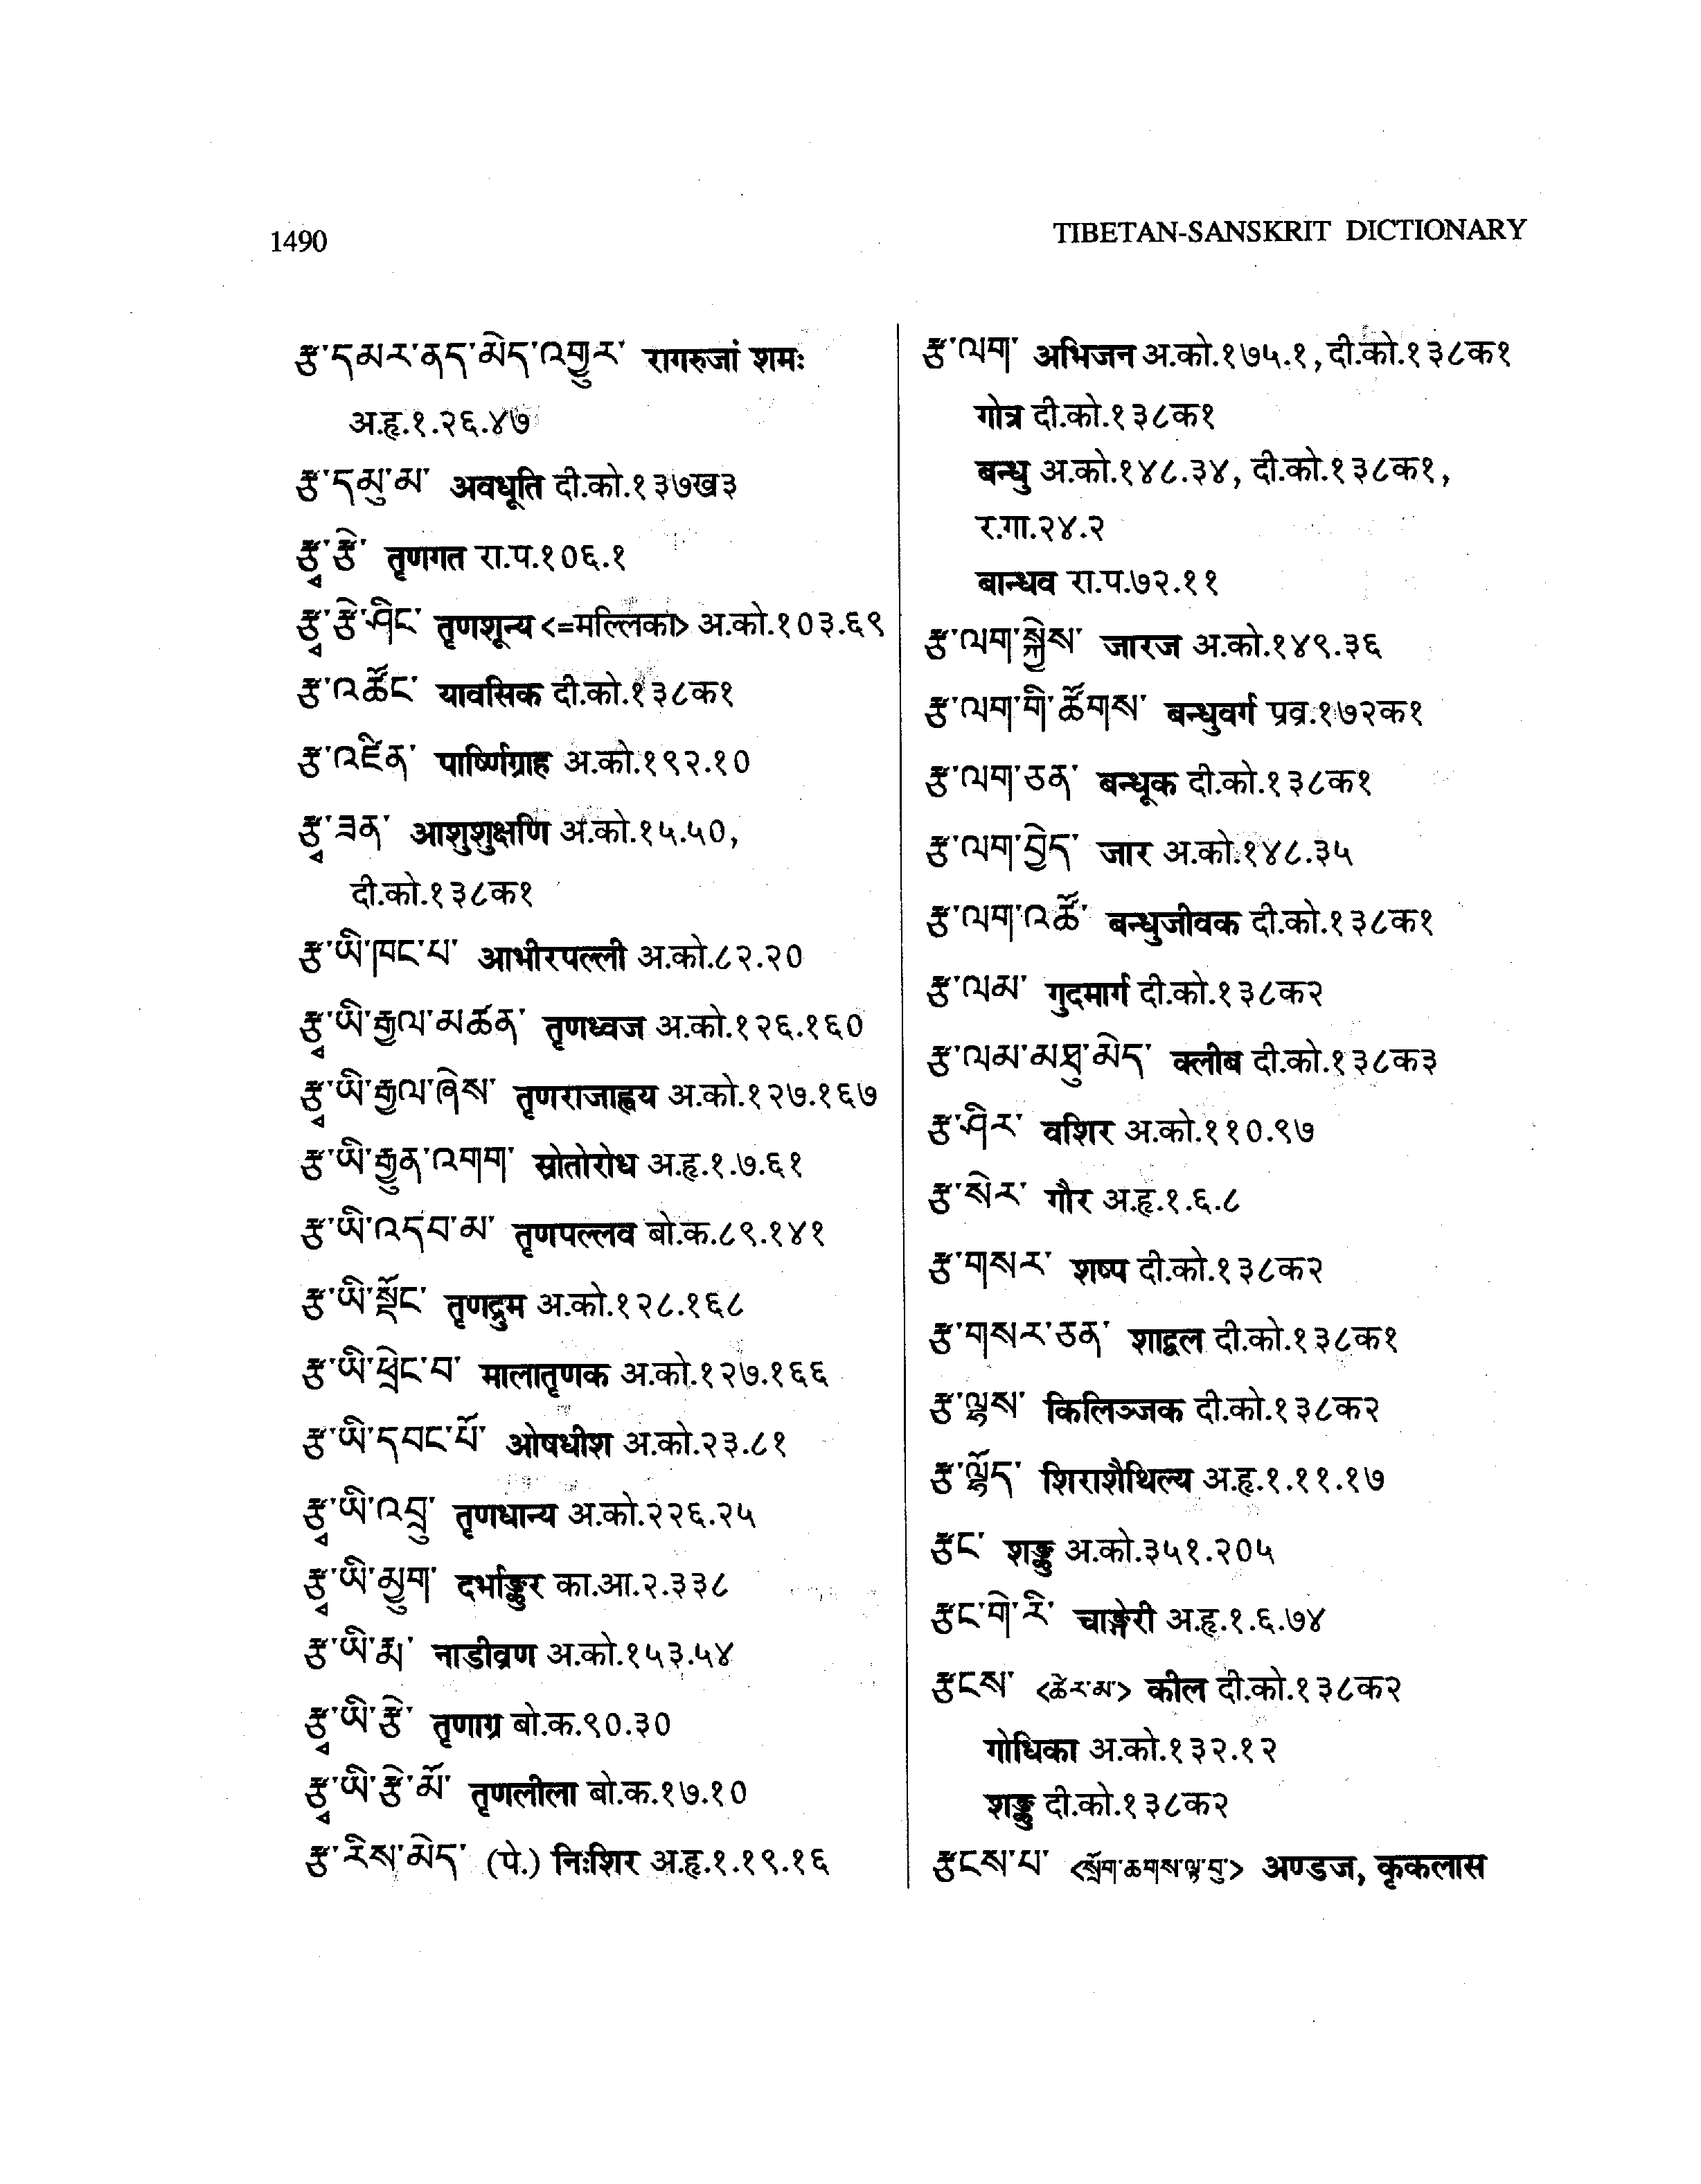 1490
TIBETAN-SANSKRIT DICTIONARY
རྩ་དམར་ནད་མེད་འགྱུར་ रागरुजां शमः
अ.हृ.१.२६.४७
རྩ་དམུ་མ་ अवधूति दी.को.१३७ख३
རྩྭ་རྩེ་ तृणगत रा.प.१०६.१
རྩྭ་རྩེ་ཤིང་ तृणशून्य <=मल्लिका> अ.को.१०३.६९
རྩ་འཚོང་ यावसिक दी.को.१३८क१
རྩ་འཛིན་ पार्ष्णिग्राह अ.को.१९२.१०
རྩྭ་ཟན་ आशुशुक्षणि अ.को.१५.५०,
दी.को.१३८क१
རྩ་ཡི་ཁང་པ་ आभीरपल्ली अ.को.८२.२०
རྩྭ་ཡི་རྒྱལ་མཚན་ तृणध्वज अ.को.१२६.१६०
རྩྭ་ཡི་རྒྱལ་ཞེས་ तृणराजाह्वय अ.को.१२७.१६७
རྩ་ཡི་རྒྱུན་འགག་ स्रोतोरोध अ.हृ.१.७.६१
རྩ་ཡི་འདབ་མ་ तृणपल्लव बो.क.८९.१४१
རྩ་ཡི་སྡོང་ तृणद्रुम अ.को.१२८.१६८
རྩ་ཡི་ཕྲེང་བ་ मालातृणक अ.को.१२७.१६६
རྩ་ཡི་དབང་པོ་ ओषधीश अ.को.२३.८१
རྩྭ་ཡི་འབྲུ་ तृणधान्य अ.को.२२६.२५
རྩྭ་ཡི་མྱུག་ दर्भाङ्कुर का.आ.२.३३८
རྩ་ཡི་རྨ་ नाडीव्रण अ.को.१५३.५४
རྩྭ་ཡི་རྩེ་ तृणाग्र बो.क.९०.३०
རྩྭ་ཡི་རྩེ་མོ་ तृणलीला बो.क.१७.१०
རྩ་རིས་མེད་ (पे.) निःशिर अ.हृ.१.१९.१६
རྩ་ལག་ अभिजन अ.को.१७५.१, दी.को.१३८क१
गोत्र दी.को.१३८क१
बन्धु अ.को.१४८.३४, दी.को.१३८क१,
र.गा.२४.२
बान्धव रा.प.७२.११
རྩ་ལག་སྐྱེས་ जारज अ.को.१४९.३६
རྩ་ལག་གི་ཚོགས་ बन्धुवर्ग प्रव्र.१७२क१
རྩ་ལག་ཅན་ बन्धूक दी.को.१३८क१
རྩ་ལག་བྱེད་ जार अ.को.१४८.३५
རྩ་ལག་འཚོ་ बन्धुजीवक दी.को.१३८क१
རྩ་ལམ་ गुदमार्ग दी.को.१३८क२
རྩ་ལམ་མཐུ་མེད་ क्लीब दी.को.१३८क३
རྩ་ཤིར་ वशिर अ.को.११०.९७
རྩ་སེར་ गौर अ.हृ.१.६.८
རྩ་གསར་ शष्प दी.को.१३८क२
རྩ་གསར་ཅན་ शाद्वल दी.को.१३८क१
རྩ་ལྷས་ किलिञ्जक दी.को.१३८क२
རྩ་ལྷོད་ शिराशैथिल्य अ.हृ.१.११.१७
རྩང་ शङ्कु अ.को.३५१.२०५
རྩང་གེ་རི་ चाङ्गेरी अ.हृ.१.६.७४
རྩངས་ <ཚེར་མ་> कील दी.को.१३८क२
गोधिका अ.को.१३२.१२
शङ्कु दी.को.१३८क२
རྩངས་པ་ <སྲོག་ཆགས་ལྟ་བུ་> अण्डज, कृकलास